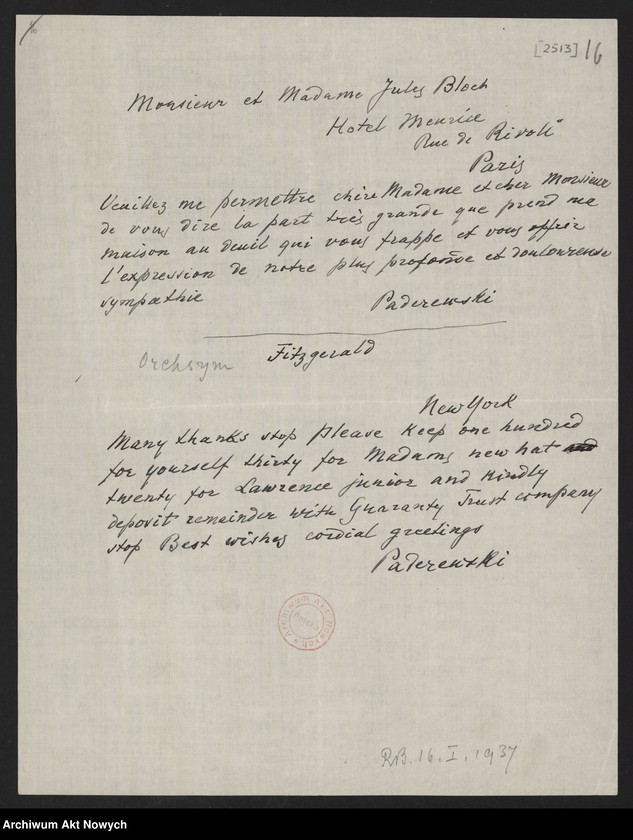 [2513] 16
Monsieur et Madame Jules Bloch
Hotel Meurice
Rue de Rivoli
Paris
Veuillez me permettre chère Madame et cher Monsieur
de vous dire la part très grande que prend ma
maison au deuil qui vous frappe et vous offrir
l'expression de notre plus profonde et douloureuse
sympathie
Paderewski
Orchsym Fitzgerald
New York
Many thanks stop Please keep one hundred
for yourself thirty for Madams new hat and
twenty for Lawrence junior and kindly
deposit remainder with Guaranty Trust company
stop Best wishes cordial greetings
Paderewski
Archiwum Akt Nowych
RB. 16. I. 1937
Archiwum Akt Nowych